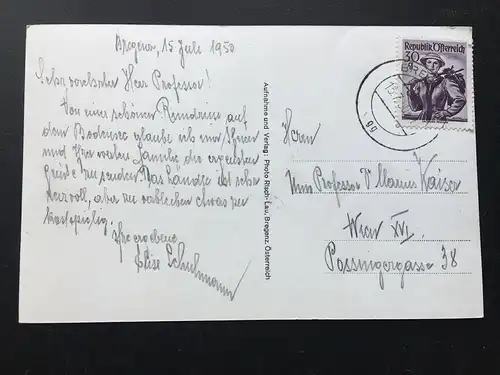 Bregenz, 15. Juli 1950
Sehr verehrter Herr Professor!
Von einer schönen Rundreise auf
dem Bodensee erlaube ich mir, Ihnen
und Ihrer werten Familie die ergebensten
Grüße zu senden. Das Ländle ist
reizvoll, aber etwas zu
kostspielig.
Ihre ergebene
Elise Schuhmann
Aufnahme und Verlag: Photo Risch-Lau, Bregenz, Österreich
Republik Österreich
30
Herrn
Univ. Professor Dr Marius Kaiser
Wien XVI.
Possingergasse 38